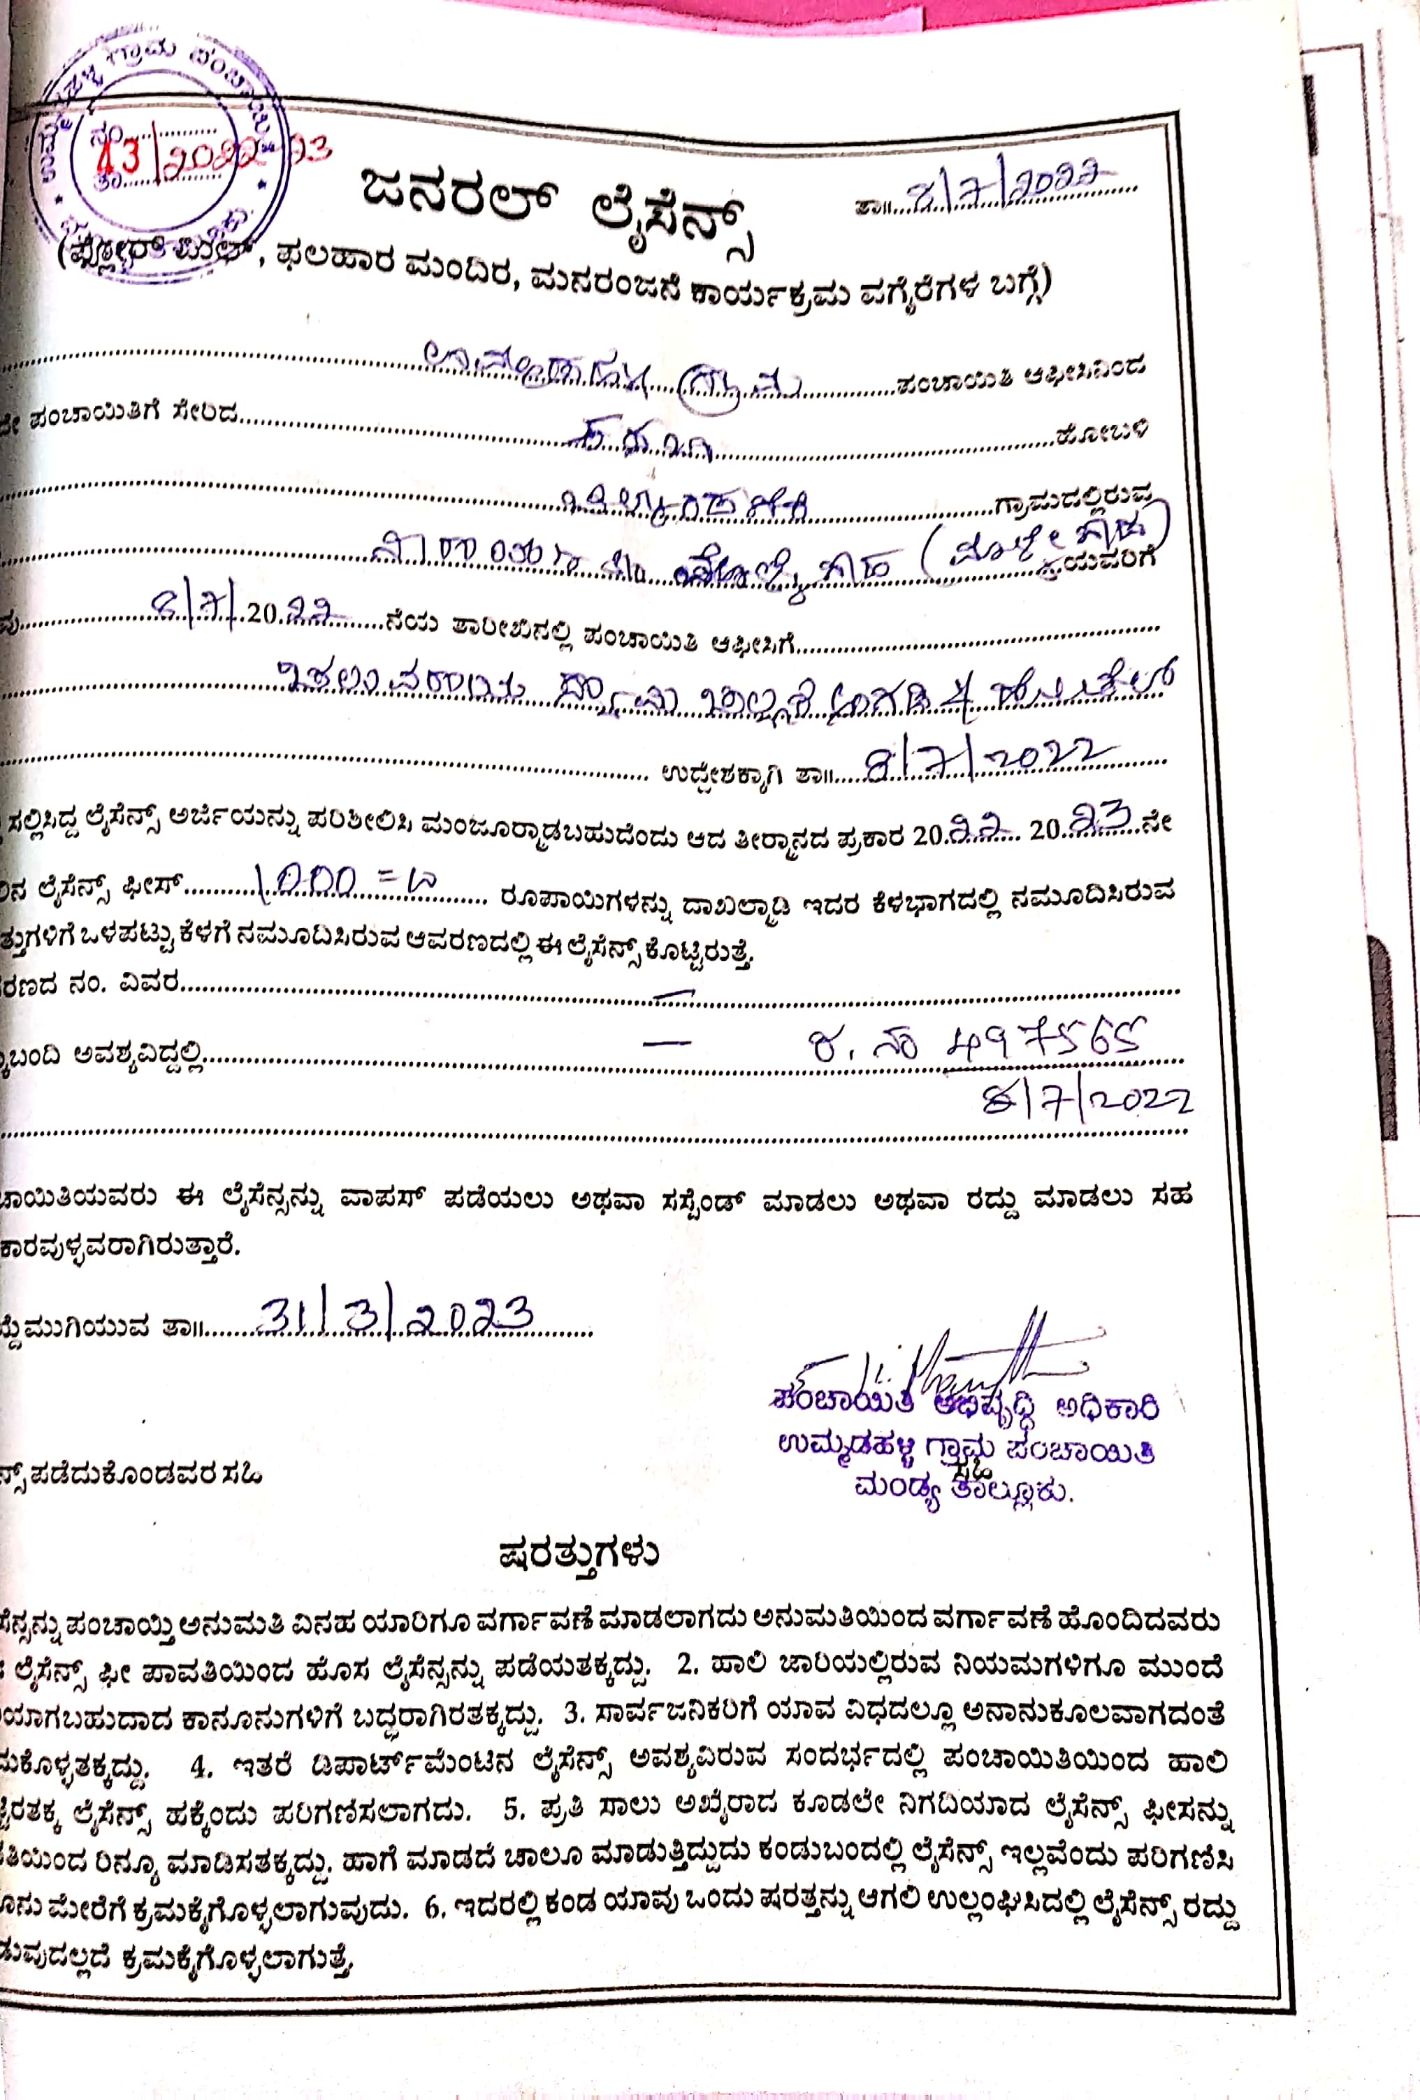 ನಂ..............
43/2022-23
ತಾ..............
ಜನರಲ್ ಲೈಸೆನ್ಸ್
ತಾ॥...8/7/2022
(ಫ್ಲೋರ್ ಮಿಲ್, ಫಲಹಾರ ಮಂದಿರ, ಮನರಂಜನೆ ಕಾರ್ಯಕ್ರಮ ವಗೈರೆಗಳ ಬಗ್ಗೆ)
ಉಮ್ಮಡಹಳ್ಳಿ ಗ್ರಾಮ ಪಂಚಾಯಿತಿ ಆಫೀಸಿನಿಂದ
ಪಂಚಾಯಿತಿಗೆ ಸೇರಿದ ಹೋಬಳಿ
ಗ್ರಾಮದಲ್ಲಿರುವ
ಯವರಿಗೆ
8/7/2022 ನೆಯ ತಾರೀಖಿನಲ್ಲಿ ಪಂಚಾಯಿತಿ ಆಫೀಸಿಗೆ
ಉದ್ದೇಶಕ್ಕಾಗಿ ತಾ॥.....8/7/2022
ಸಲ್ಲಿಸಿದ್ದ ಲೈಸೆನ್ಸ್ ಅರ್ಜಿಯನ್ನು ಪರಿಶೀಲಿಸಿ ಮಂಜೂರ್ಮಾಡಬಹುದೆಂದು ಆದ ತೀರ್ಮಾನದ ಪ್ರಕಾರ 2022 2023 ನೇ
ಲೈಸೆನ್ಸ್ ಫೀಸ್ 1000 = ರೂಪಾಯಿಗಳನ್ನು ದಾಖಲ್ಮಾಡಿ ಇದರ ಕೆಳಭಾಗದಲ್ಲಿ ನಮೂದಿಸಿರುವ
ತ್ತುಗಳಿಗೆ ಒಳಪಟ್ಟು ಕೆಳಗೆ ನಮೂದಿಸಿರುವ ಆವರಣದಲ್ಲಿ ಈ ಲೈಸೆನ್ಸ್ ಕೊಟ್ಟಿರುತ್ತೆ.
ರಣದ ನಂ. ವಿವರ —
ಬಂದಿ ಅವಶ್ಯವಿದ್ದಲ್ಲಿ — ರ. ನಂ 497565
8/7/2022
ಚಾಯಿತಿಯವರು ಈ ಲೈಸೆನ್ಸನ್ನು ವಾಪಸ್ ಪಡೆಯಲು ಅಥವಾ ಸಸ್ಪೆಂಡ್ ಮಾಡಲು ಅಥವಾ ರದ್ದು ಮಾಡಲು ಸಹ
ಕಾರವುಳ್ಳವರಾಗಿರುತ್ತಾರೆ.
ಮುಗಿಯುವ ತಾ॥ 31/3/2023
ಪಂಚಾಯಿತಿ ಅಭಿವೃದ್ಧಿ ಅಧಿಕಾರಿ
ಉಮ್ಮಡಹಳ್ಳಿ ಗ್ರಾಮ ಪಂಚಾಯಿತಿ
ಸಹಿ
ಮಂಡ್ಯ ತಾಲ್ಲೂಕು.
ನ್ಸ್ ಪಡೆದುಕೊಂಡವರ ಸಹಿ
ಷರತ್ತುಗಳು
ಸೆನ್ಸನ್ನು ಪಂಚಾಯ್ತಿ ಅನುಮತಿ ವಿನಹ ಯಾರಿಗೂ ವರ್ಗಾವಣೆ ಮಾಡಲಾಗದು ಅನುಮತಿಯಿಂದ ವರ್ಗಾವಣೆ ಹೊಂದಿದವರು
ಲೈಸೆನ್ಸ್ ಫೀ ಪಾವತಿಯಿಂದ ಹೊಸ ಲೈಸೆನ್ಸನ್ನು ಪಡೆಯತಕ್ಕದ್ದು. 2. ಹಾಲಿ ಜಾರಿಯಲ್ಲಿರುವ ನಿಯಮಗಳಿಗೂ ಮುಂದೆ
ಯಾಗಬಹುದಾದ ಕಾನೂನುಗಳಿಗೆ ಬದ್ಧರಾಗಿರತಕ್ಕದ್ದು. 3. ಸಾರ್ವಜನಿಕರಿಗೆ ಯಾವ ವಿಧದಲ್ಲೂ ಅನಾನುಕೂಲವಾಗದಂತೆ
ಕೊಳ್ಳತಕ್ಕದ್ದು. 4. ಇತರೆ ಡಿಪಾರ್ಟ್‌ಮೆಂಟಿನ ಲೈಸೆನ್ಸ್ ಅವಶ್ಯವಿರುವ ಸಂದರ್ಭದಲ್ಲಿ ಪಂಚಾಯಿತಿಯಿಂದ ಹಾಲಿ
ರತಕ್ಕ ಲೈಸೆನ್ಸ್ ಹಕ್ಕೆಂದು ಪರಿಗಣಿಸಲಾಗದು. 5. ಪ್ರತಿ ಸಾಲು ಅಖೈರಾದ ಕೂಡಲೇ ನಿಗದಿಯಾದ ಲೈಸೆನ್ಸ್ ಫೀಸನ್ನು
ತಿಯಿಂದ ರಿನ್ಯೂ ಮಾಡಿಸತಕ್ಕದ್ದು. ಹಾಗೆ ಮಾಡದೆ ಚಾಲೂ ಮಾಡುತ್ತಿದ್ದುದು ಕಂಡುಬಂದಲ್ಲಿ ಲೈಸೆನ್ಸ್ ಇಲ್ಲವೆಂದು ಪರಿಗಣಿಸಿ
ನು ಮೇರೆಗೆ ಕ್ರಮಕೈಗೊಳ್ಳಲಾಗುವುದು. 6. ಇದರಲ್ಲಿ ಕಂಡ ಯಾವು ಒಂದು ಷರತ್ತನ್ನು ಆಗಲಿ ಉಲ್ಲಂಘಿಸಿದಲ್ಲಿ ಲೈಸೆನ್ಸ್ ರದ್ದು
ಡುವುದಲ್ಲದೆ ಕ್ರಮಕೈಗೊಳ್ಳಲಾಗುತ್ತೆ.